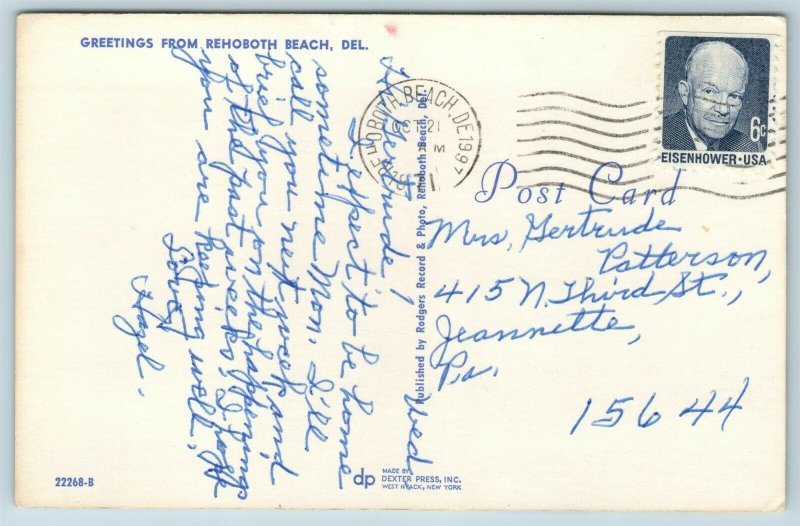 GREETINGS FROM REHOBOTH BEACH, DEL.
Wed.
Hi Gertrude,
I expect to be home
sometime Mon. I'll
call you next week and
brief you on the happenings
of the past weeks. I hope
you are keeping well.
Love,
Hazel.
Published by Rodgers Record & Photo, Rehoboth Beach, Del.
REHOBOTH BEACH, DE 1997
OCT 21
PM
6c
EISENHOWER·USA
Post Card
Mrs. Gertrude
Patterson,
415 N. Third St.,
Jeannette,
Pa.
15644
22268-B
dp
MADE BY
DEXTER PRESS, INC.
WEST NYACK, NEW YORK